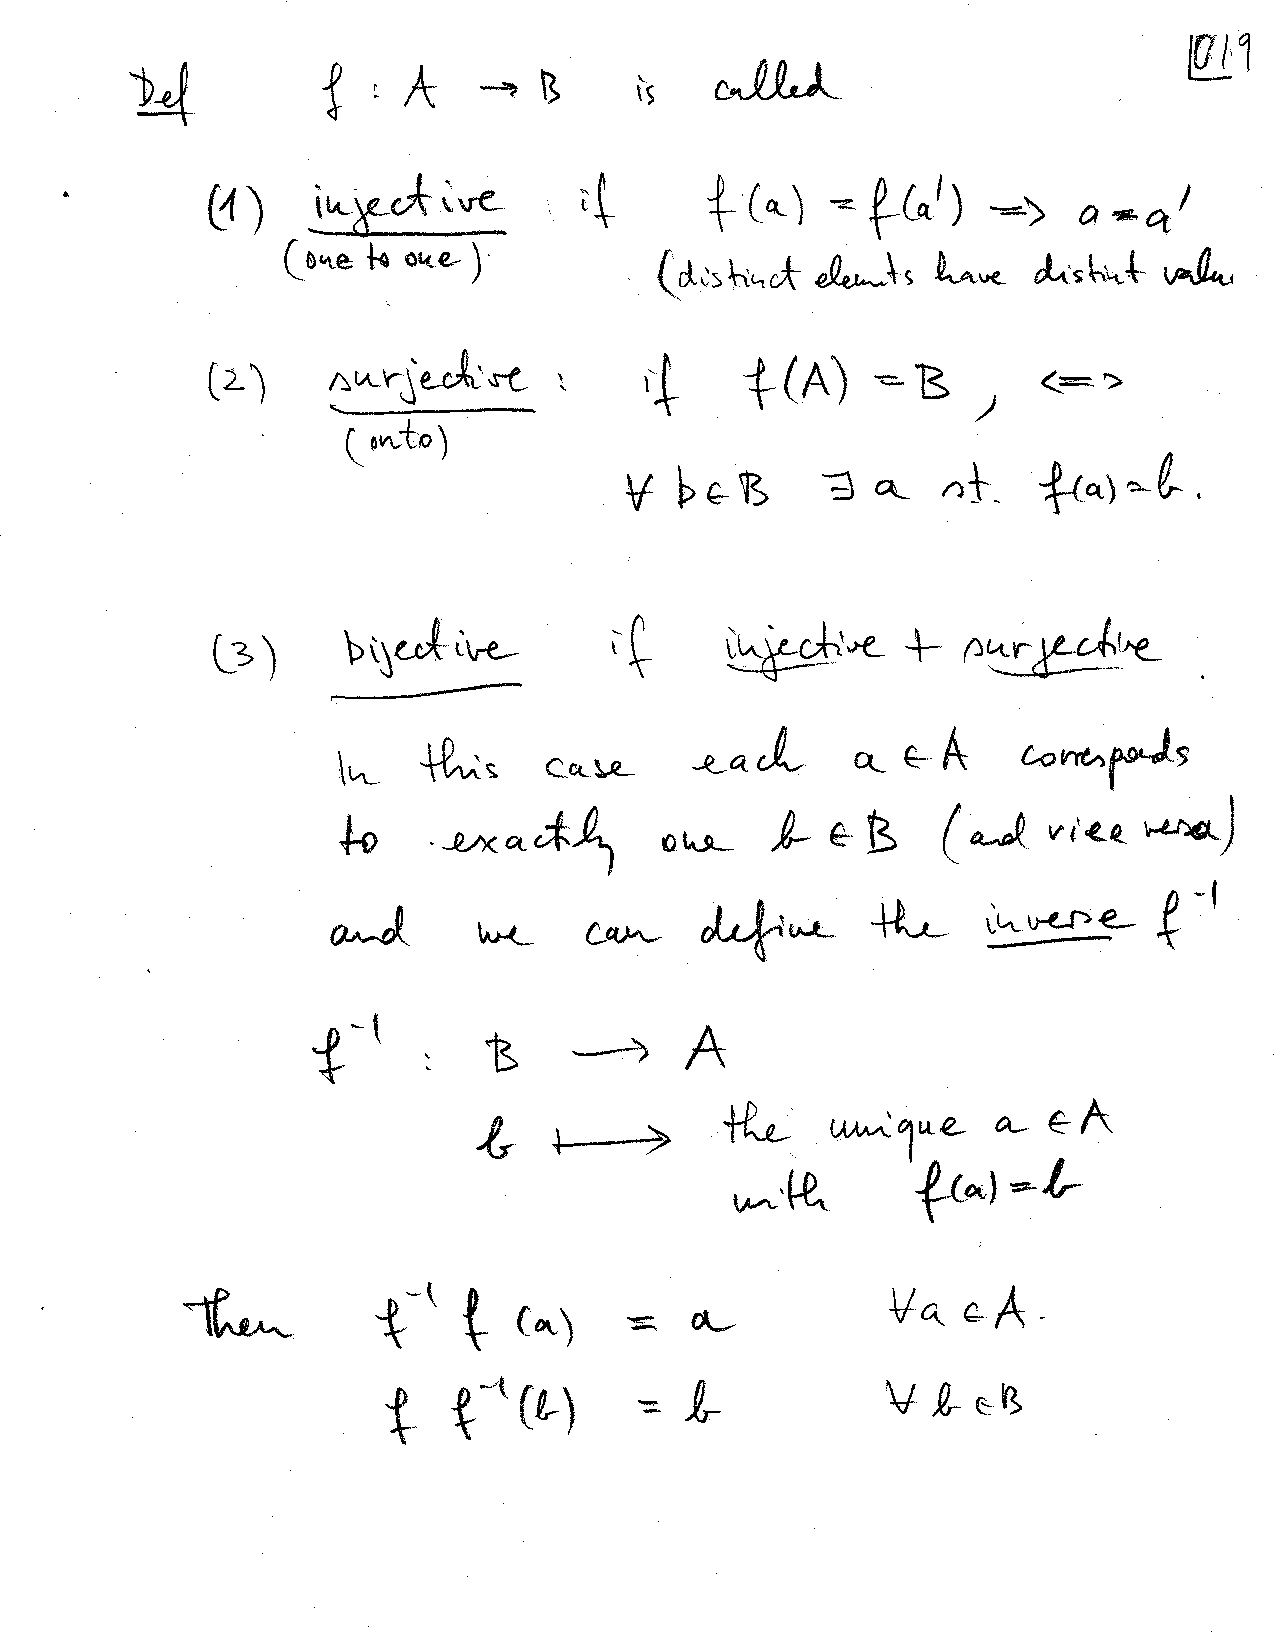 0/.9
Def f : A → B is called
(1) injective if f(a) = f(a') => a = a'
(one to one) (distinct elemnts have distint value
(2) surjective : if f(A) = B, <=>
(onto)
∀ b ∈ B ∃ a st. f(a) = b.
(3) bijective if injective + surjective
In this case each a ∈ A corresponds
to exactly one b ∈ B (and vice versa)
and we can define the inverse f⁻¹
f⁻¹ : B → A
b ↦ the unique a ∈ A
with f(a) = b
Then f⁻¹ f (a) = a ∀ a ∈ A.
f f⁻¹(b) = b ∀ b ∈ B